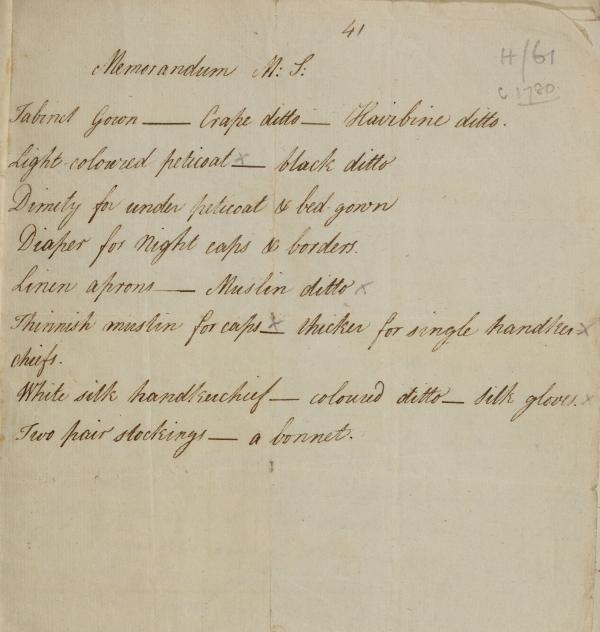 41
H/61
c.1780
Memorandum M: S:
Tabinet Gown — Crape ditto — Havibine ditto.
Light-coloured peticoat x — black ditto
Dimity for under peticoat & bed-gown
Diaper for Night caps & borders.
Linen aprons — Muslin ditto x
Thinnish muslin for caps x — thicker for single handker x
chiefs.
White silk handkerchief — coloured ditto — silk gloves. x
Two pair stockings — a bonnet.